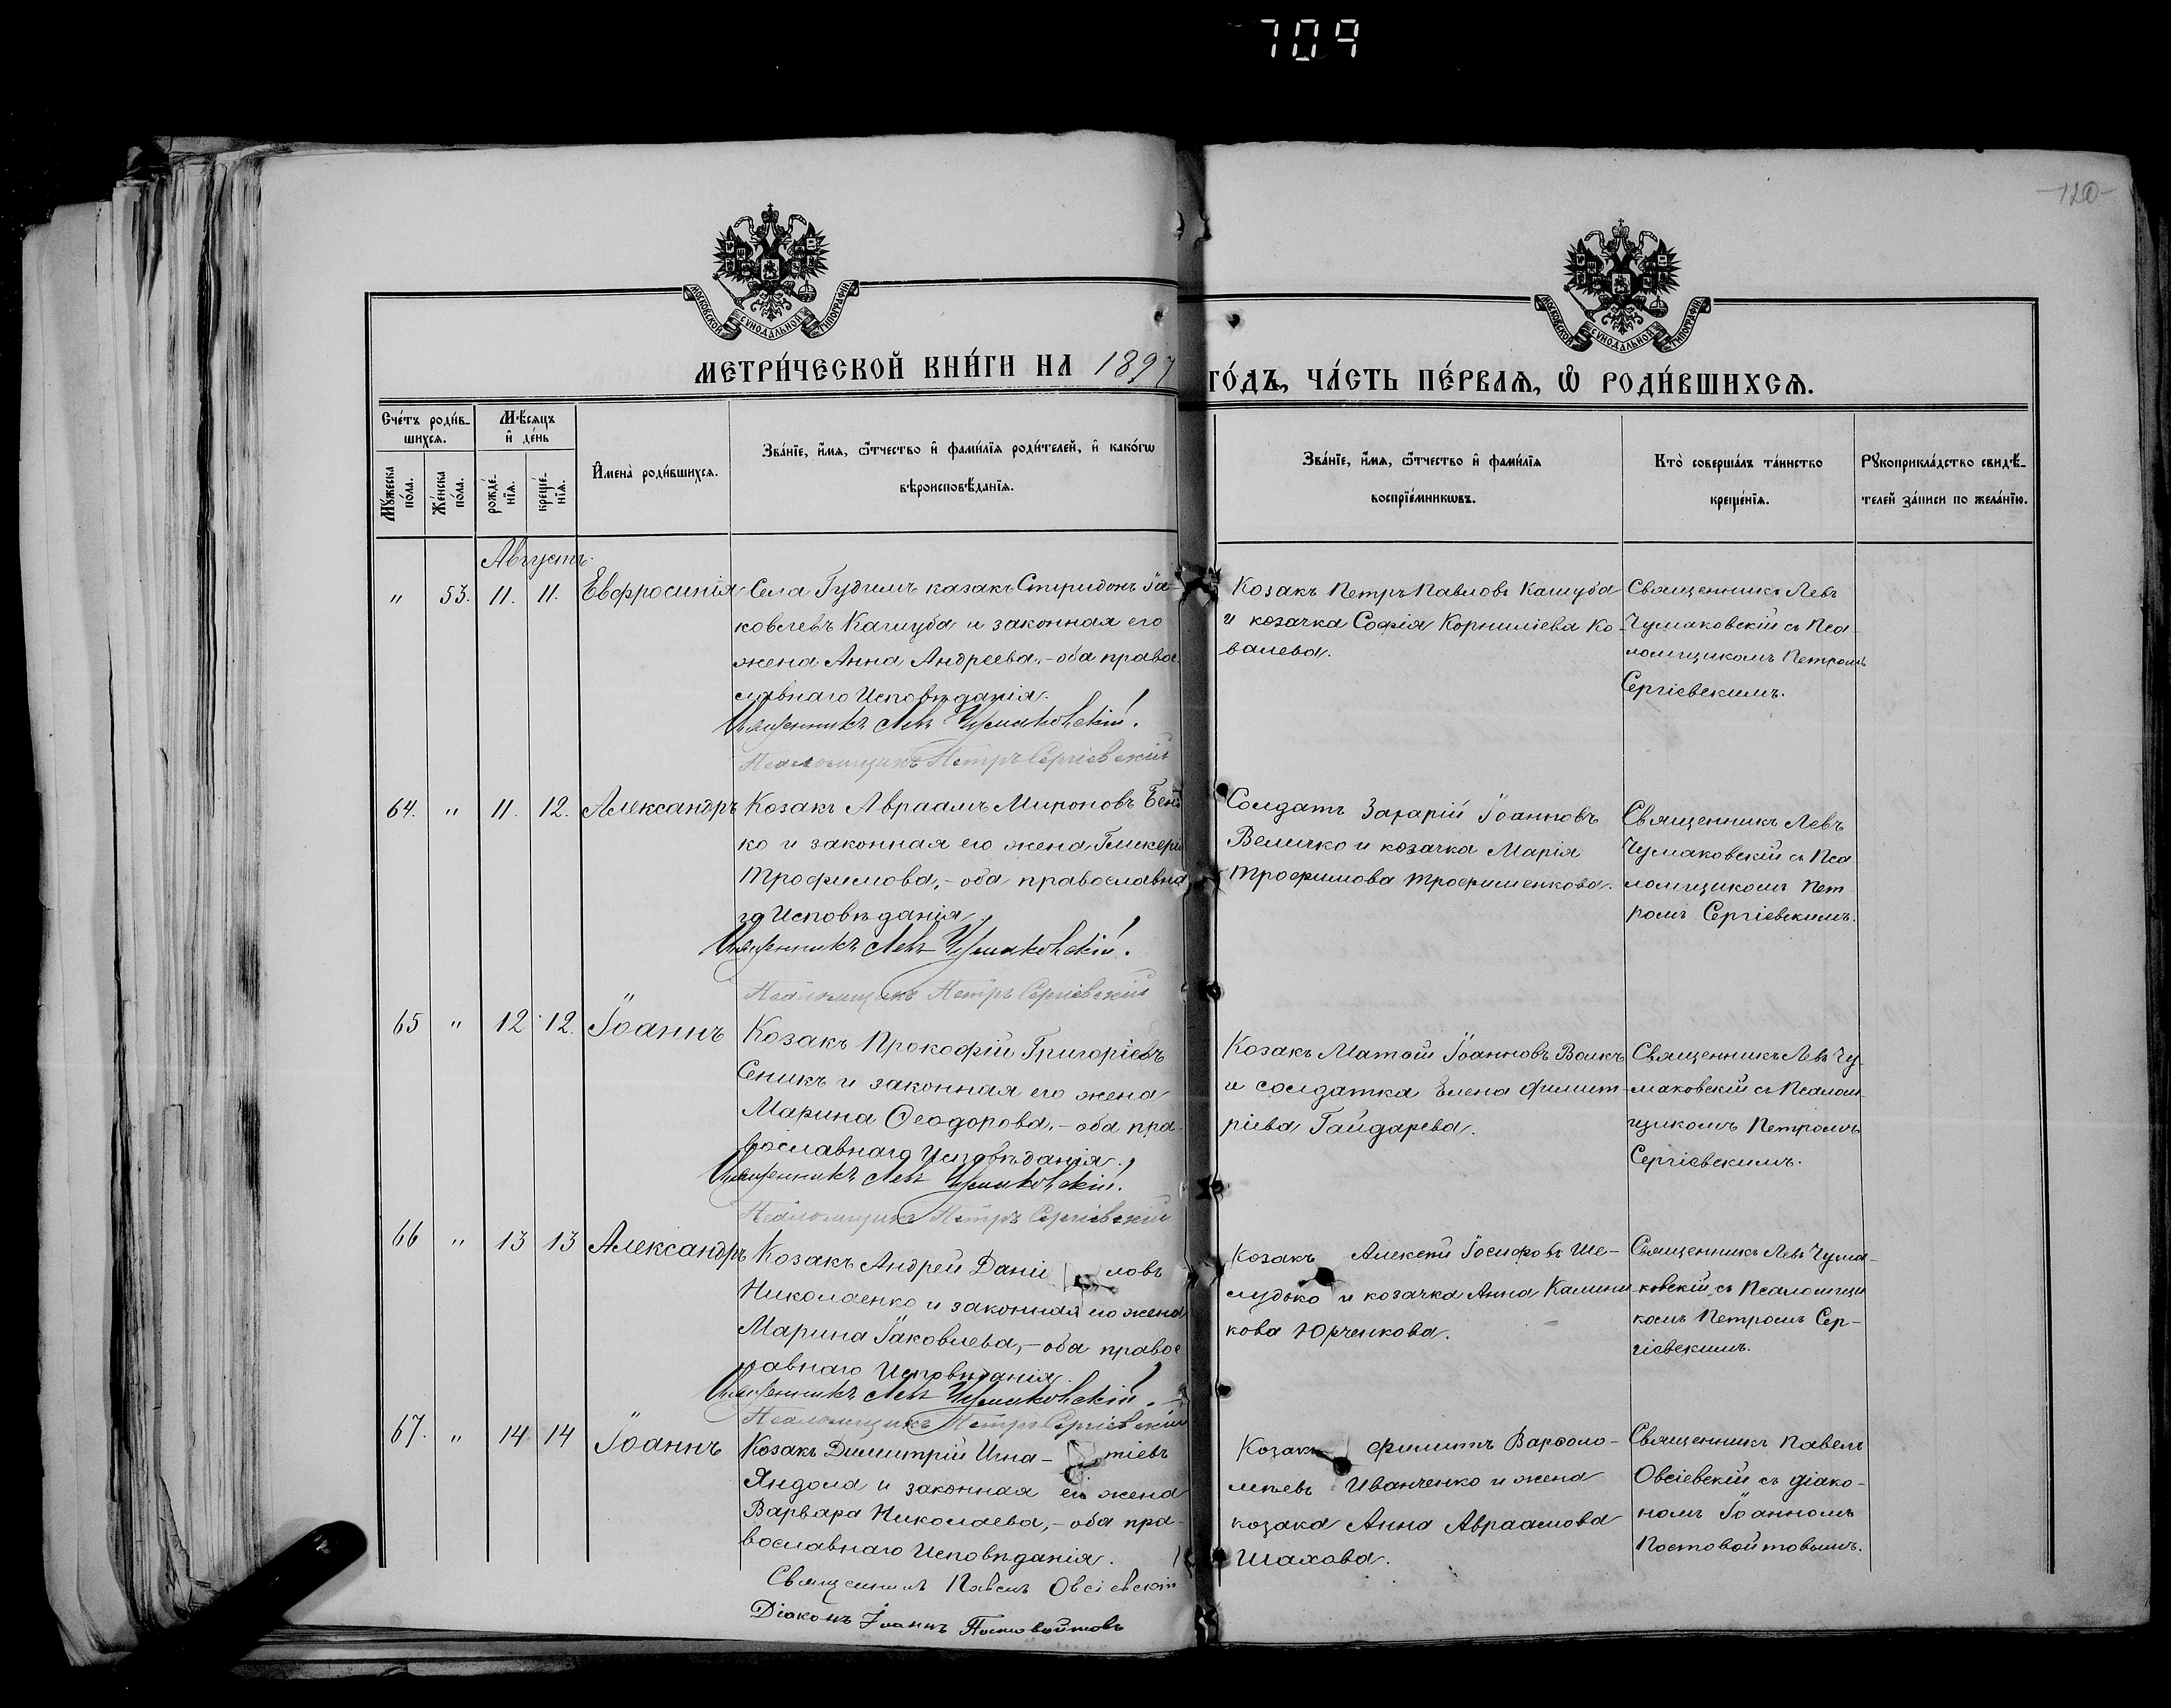 709
120
МОСКОВСКОЙ СѴНОДАЛЬНОЙ ТИПОГРАФІИ
МОСКОВСКОЙ СѴНОДАЛЬНОЙ ТИПОГРАФІИ
МЕТРИ́ЧЕСКОЙ КНИ́ГИ НА 1897 ГО́ДЪ, ЧА́СТЬ ПЕ́РВАѦ, Ѡ҆ РОДИ́ВШИХСѦ.
Сче́тъ роди́в-
шихсѧ.
Мѣ́сѧцъ
и҆ де́нь
Мꙋ́жеска
по́ла.
Же́нска
по́ла.
рожде́-
нїѧ.
креще́-
нїѧ.
И҆мена̀ роди́вшихсѧ.
Зва́нїе, и҆́мѧ, ѻ҆́тчество и҆ фами́лїѧ роди́телей, и҆ како́гѡ
вѣроисповѣ́данїѧ.
Зва́нїе, и҆́мѧ, ѻ҆́тчество и҆ фами́лїѧ
воспрїе́мникѡвъ.
Кто̀ соверша́лъ та́инство
креще́нїѧ.
Рꙋкоприкла́дство свидѣ́-
телей за́писи по жела́нїю.
Августъ.
" 53. 11. 11. Евфросинія
Села Гудимъ казакъ Спиридонъ Іа-
ковлевъ Кашуба и законная его
жена Анна Андреева, - оба правос-
славнаго Исповѣданія.
Священникъ Левъ Чумаковскій.
Псаломщикъ Петръ Сергіевскій
Козакъ Петръ Павловъ Кашуба
и козачка Софія Корниліева Ко-
валева.
Священникъ Левъ
Чумаковскій съ Пса-
ломщикомъ Петромъ
Сергіевскимъ.
64. " 11. 12. Александръ
Козакъ Авраамъ Мироновъ
ко и законная его жена Гликерія
Трофимова, - оба православна
го Исповѣданія.
Священникъ Левъ Чумаковскій.
Псаломщикъ Петръ Сергіевскій
Солдатъ Захарій Іоанновъ
Величко и козачка Марія
Трофимова Трофименкова.
Священникъ Левъ
Чумаковскій съ Пса
ломщикомъ Пет
ромъ Сергіевскимъ.
65 " 12 12. Іоаннъ
Козакъ Прокофій Григоріевъ
Сеникъ и законная его жена
Марина Ѳеодорова, - оба пра-
вославнаго Исповѣданія.
Священникъ Левъ Чумаковскій.
Псаломщикъ Петръ Сергіевскій
Козакъ Матѳій Іоанновъ Волкъ
и солдатка Елена
ріева Гайдарева.
Священникъ Левъ Чу-
маковскій съ Псалом-
щикомъ Петромъ
Сергіевскимъ.
66 " 13 13 Александръ
Козакъ Андрей Даніи ловъ
Николаенко и законная его жена
Марина Іаковлева, - оба правос
лавнаго Исповѣданія.
Священникъ Левъ Чумаковскій.
Псаломщикъ Петръ Сергіевскій
Козакъ Алексѣй Іосифовъ Ше-
лудько и козачка Анна Калини
кова Юрченкова.
Священникъ Левъ Чума-
ковскій съ Псаломщи
комъ Петромъ Сер-
гіевскимъ.
67. " 14 14 Іоаннъ
Козакъ Димитрій Игна- тіевъ
Яндола и законная его жена
Варвара Николаева, - оба пра-
вославнаго Исповѣданія.
Священникъ Павелъ Овсіевскій
Діаконъ Іоаннъ Постовойтовъ
Козакъ Филиппъ Варѳоло-
мѣевъ Иванченко и жена
козака Анна Авраамова
Шахова.
Священникъ Павелъ
Овсіевскій съ діако-
номъ Іоанномъ
Постовойтовымъ.